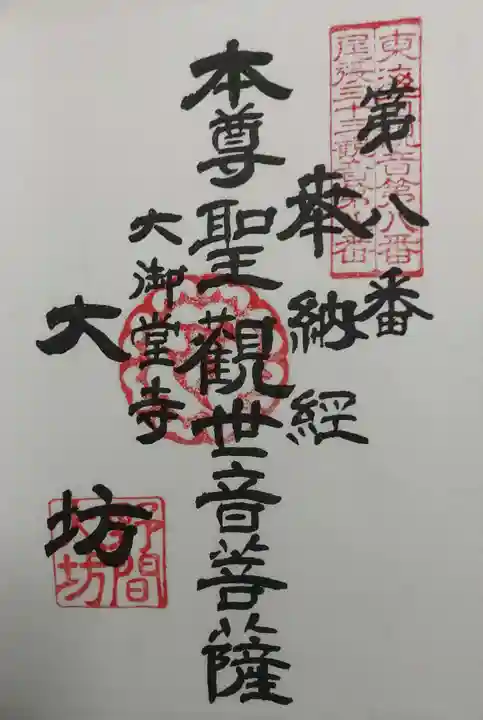 東海圏観音第八番
尾張三十三観音第八番
第八番
奉納経
本尊聖觀世音菩薩
大御堂寺
大坊
野間
大坊